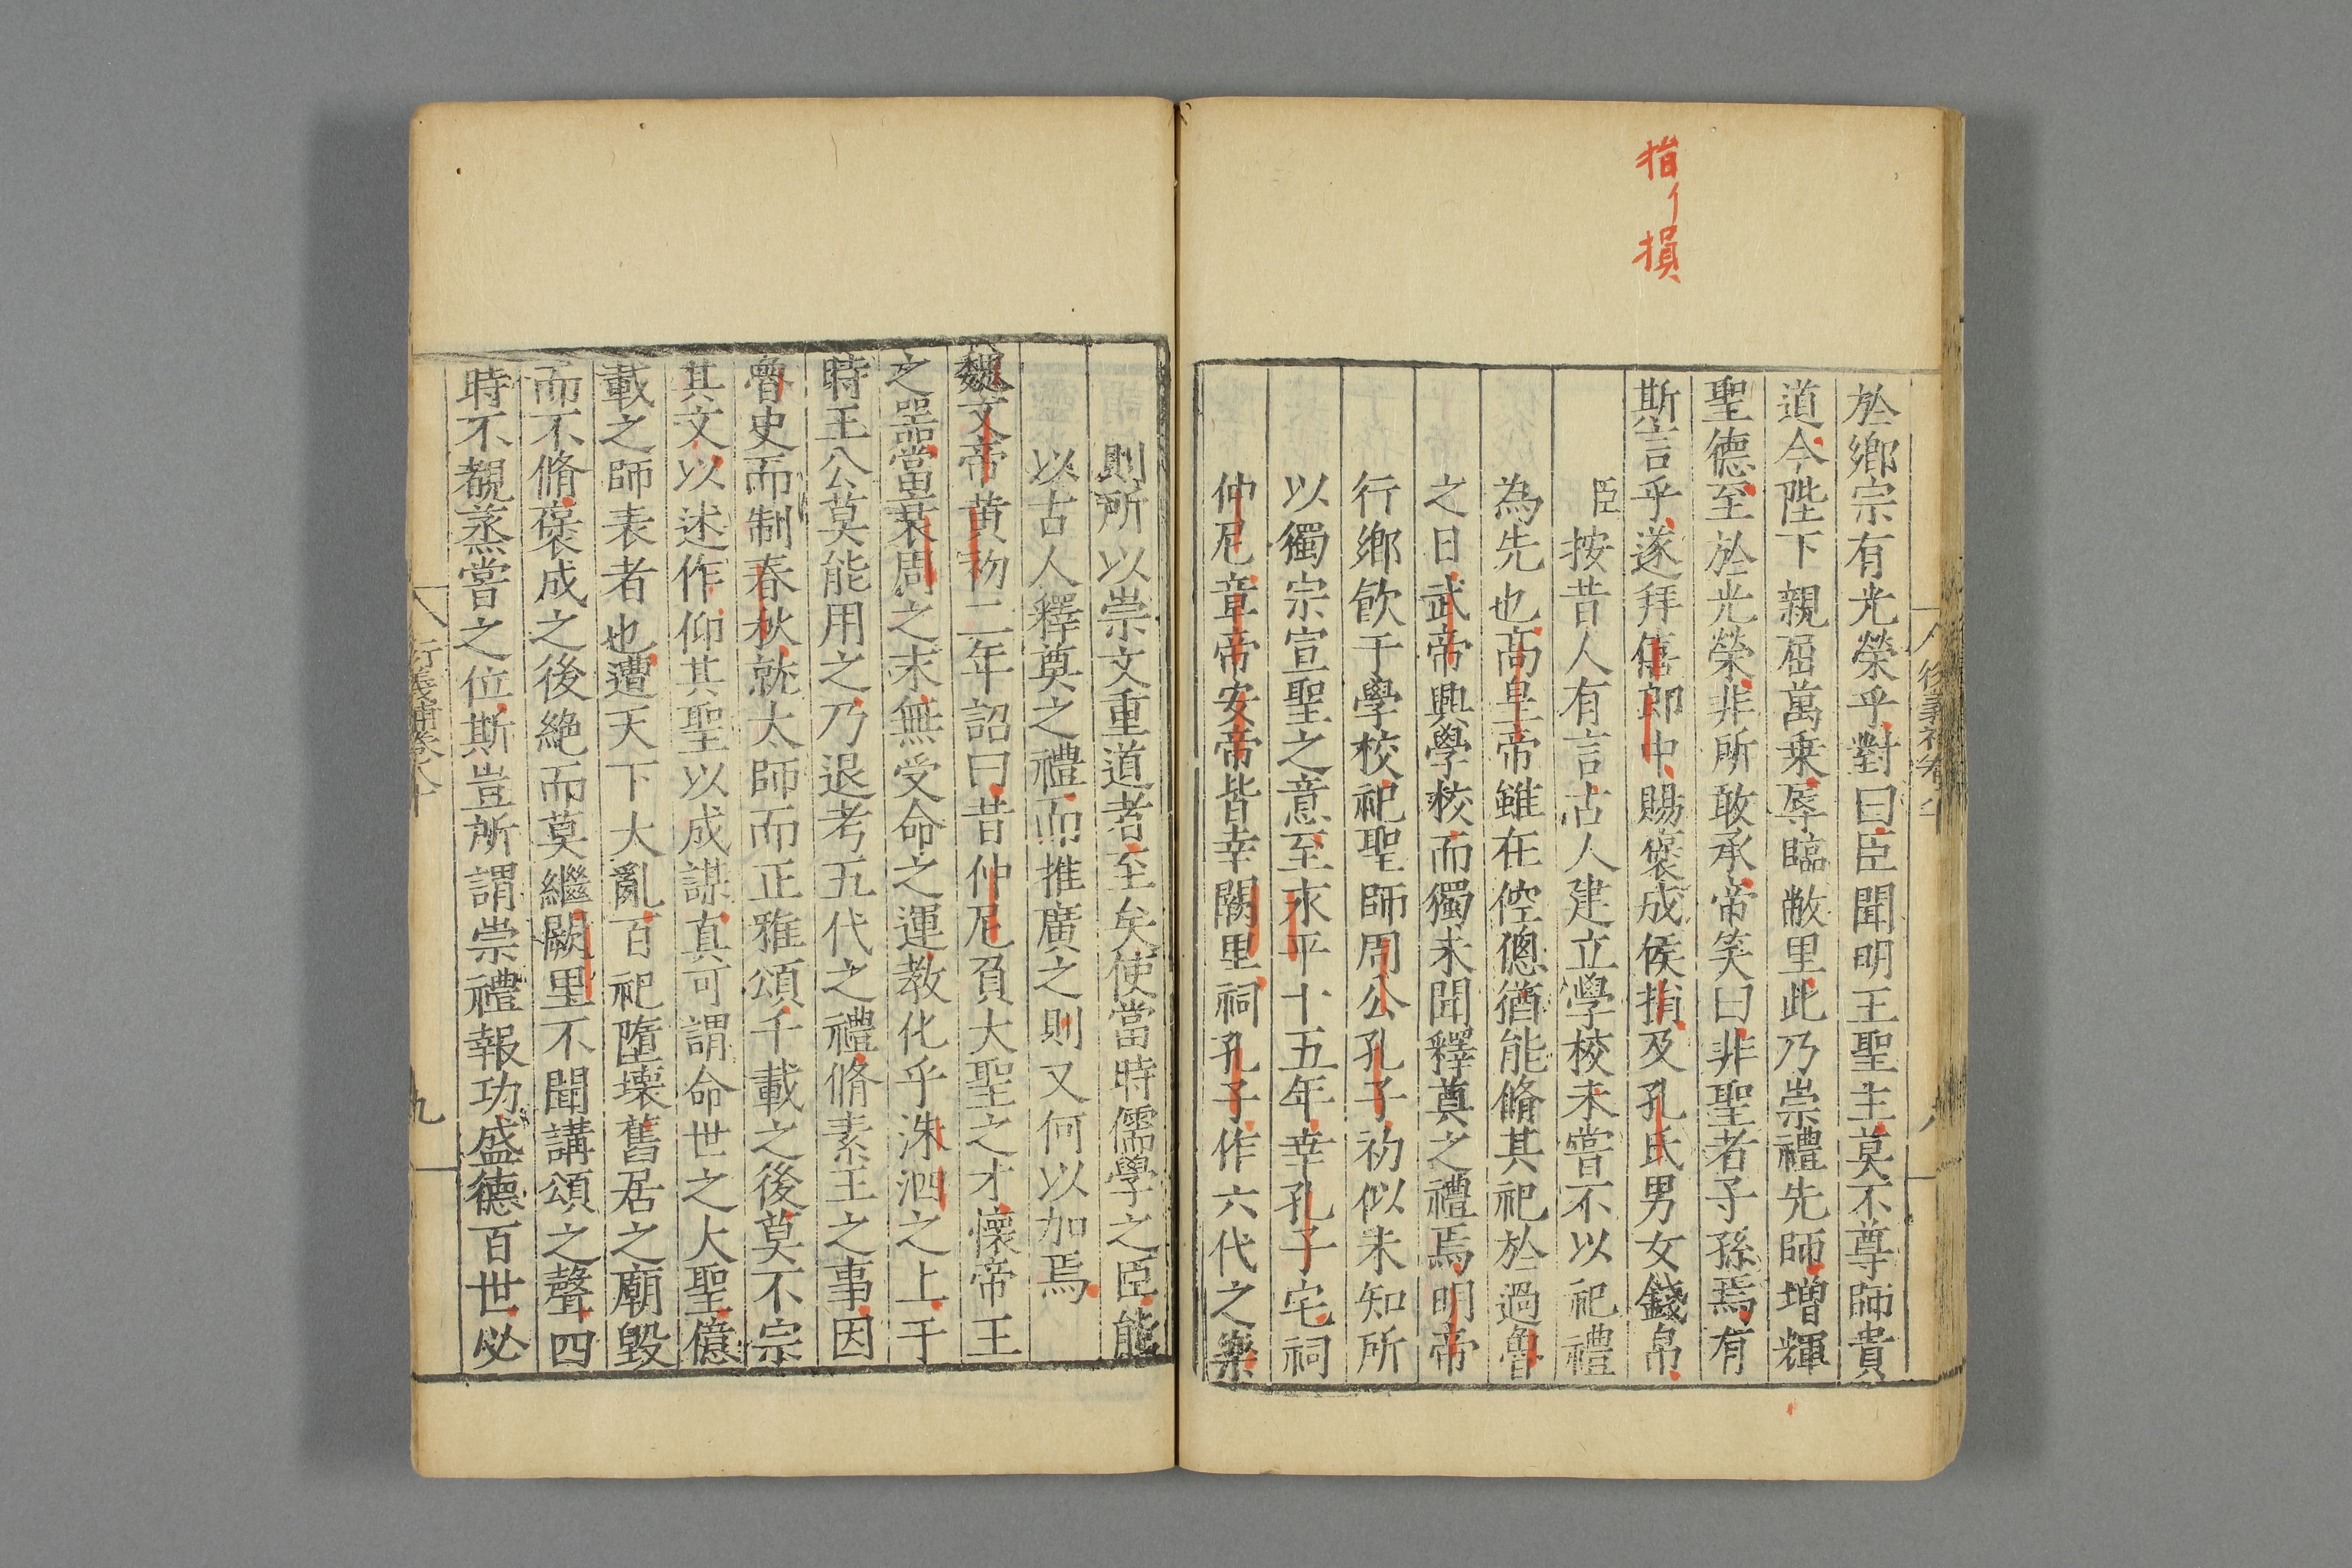 指亻損
於鄉宗有光榮乎對曰臣聞明王聖主莫不尊師貴
道今陛下親屈萬乗辱臨敝里此乃崇禮先師增輝
聖德至於光榮非所敢承帝笑曰非聖者子孫焉有
斯言乎遂拜僖郎中賜褒成侯損及孔氏男女錢帛
臣按昔人有言古人建立學校未嘗不以祀禮
為先也髙皇帝雖在倥偬猶能脩其祀於過魯
之日武帝興學校而獨未聞釋奠之禮焉明帝
行鄉飲于學校祀聖師周公孔子初似未知所
以獨宗宣聖之意至永平十五年幸孔子宅祠
仲尼章帝安帝皆幸闕里祠孔子作六代之樂
則所以崇文重道者至矣使當時儒學之臣能
以古人釋奠之禮而推廣之則又何以加焉
魏文帝黄初二年詔曰昔仲尼負大聖之才懷帝王
之噐當衰周之末無受命之運教化乎洙泗之上于
時王公莫能用之乃退考五代之禮脩素王之事因
魯史而制春秋就太師而正雅頌千載之後莫不宗
其文以述作仰其聖以成謀真可謂命世之大聖億
載之師表者也遭天下大亂百祀墮壊舊居之廟毀
而不脩褒成之後絶而莫繼闕里不聞講頌之聲四
時不覩蒸嘗之位斯豈所謂崇禮報功盛德百世必
衍義補卷八十
九